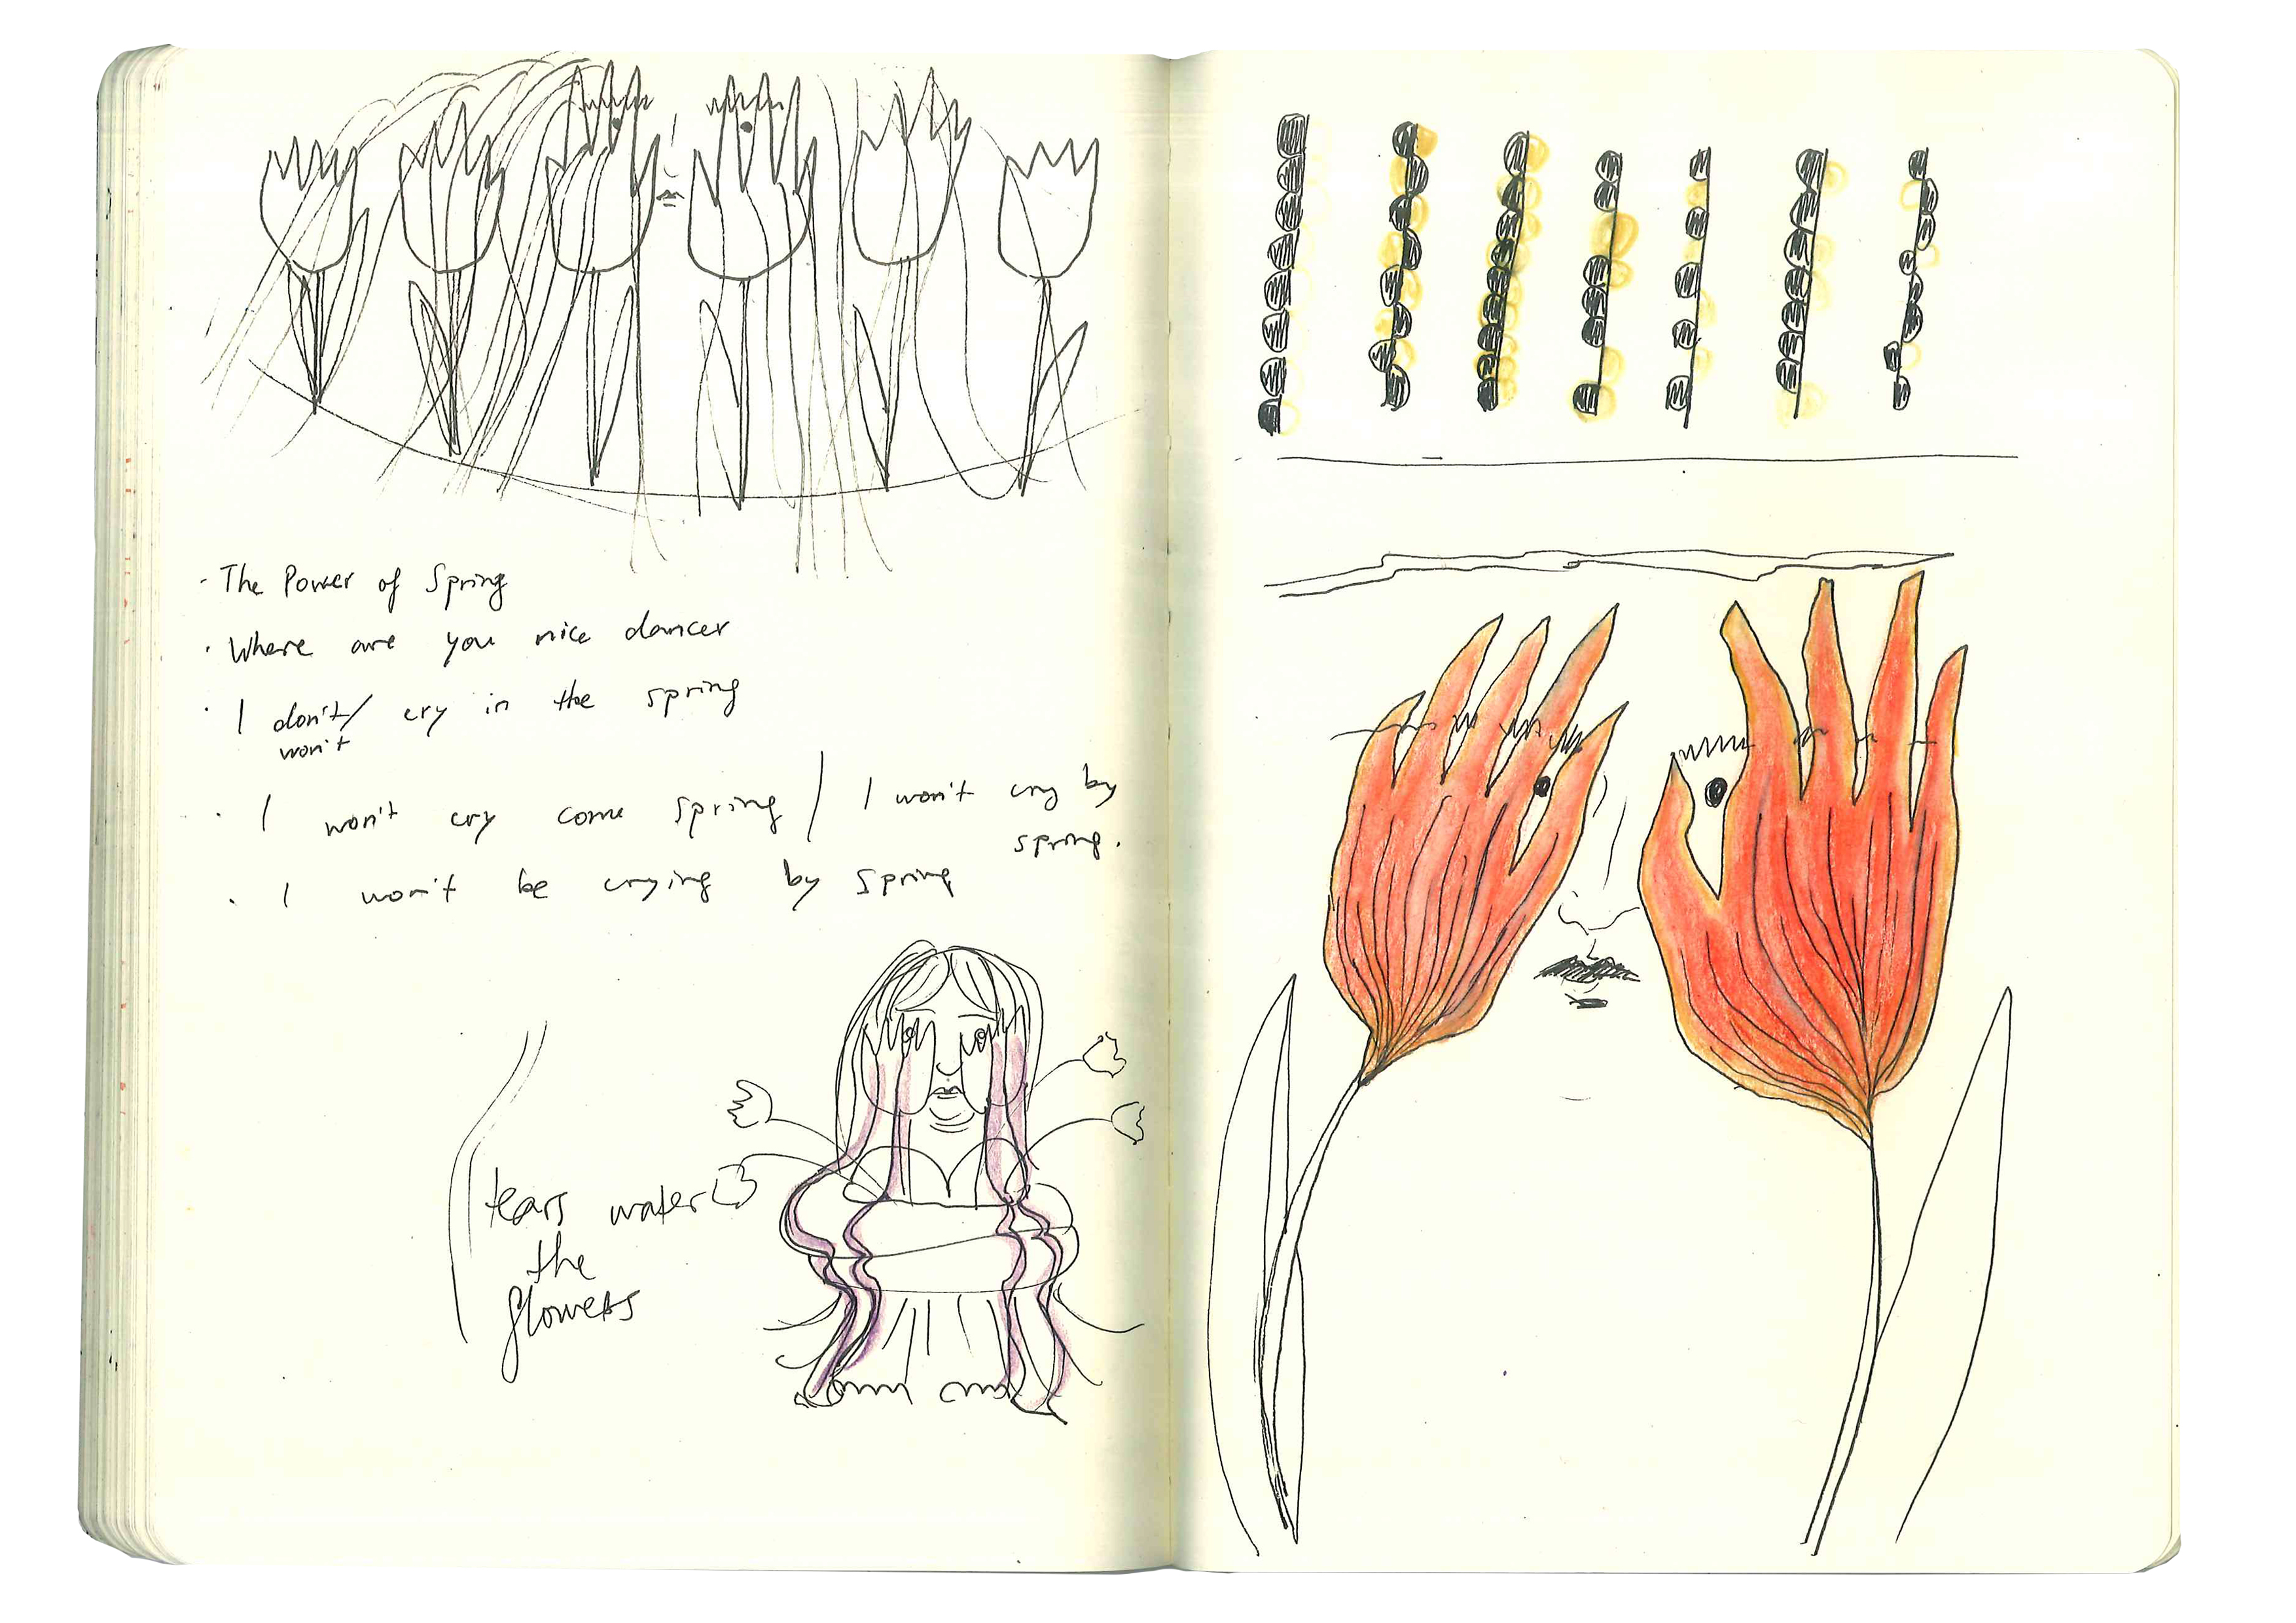 · The Power of Spring
· Where are you nice dancer
· I don't/ cry in the spring
won't
· I won't cry come spring / I won't cry by
spring.
· I won't be crying by spring
tears water
the
flowers